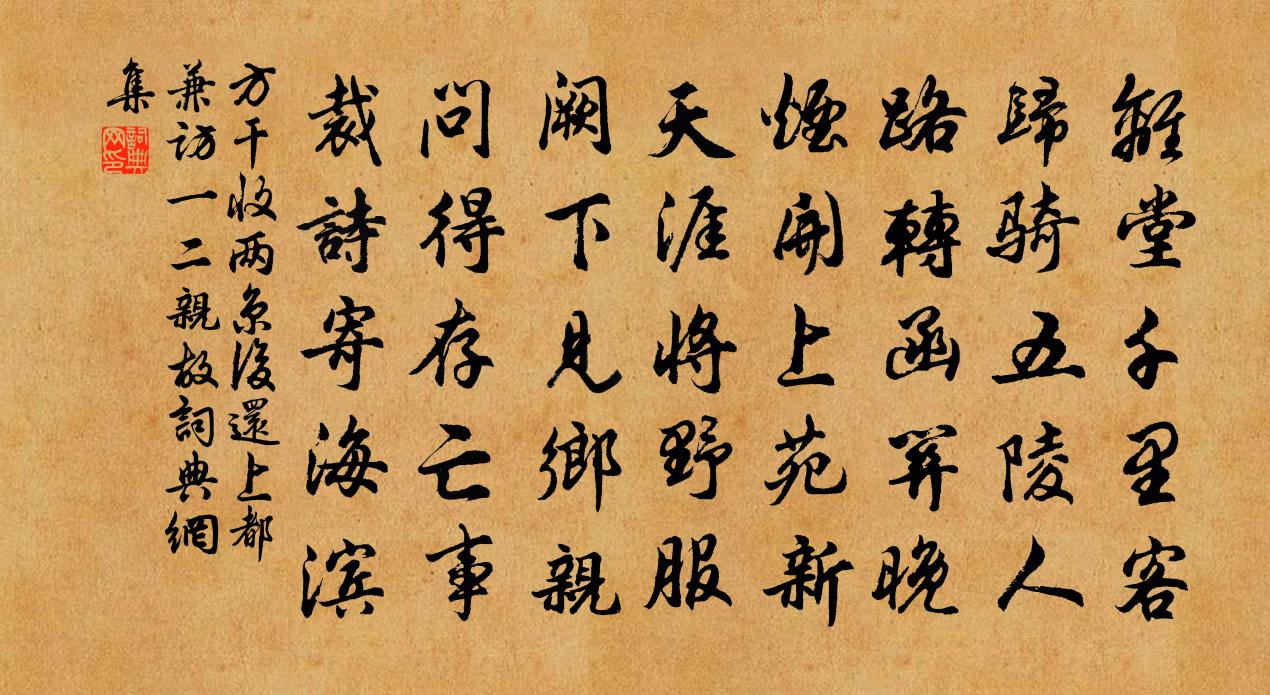 離堂千里客
歸騎五陵人
路轉函関晚
煙開上苑新
天涯將野服
闕下見鄉親
問得存亡事
裁詩寄海滨
方干收两京後還上都
兼訪一二親故詞典網
集
詞典
网印